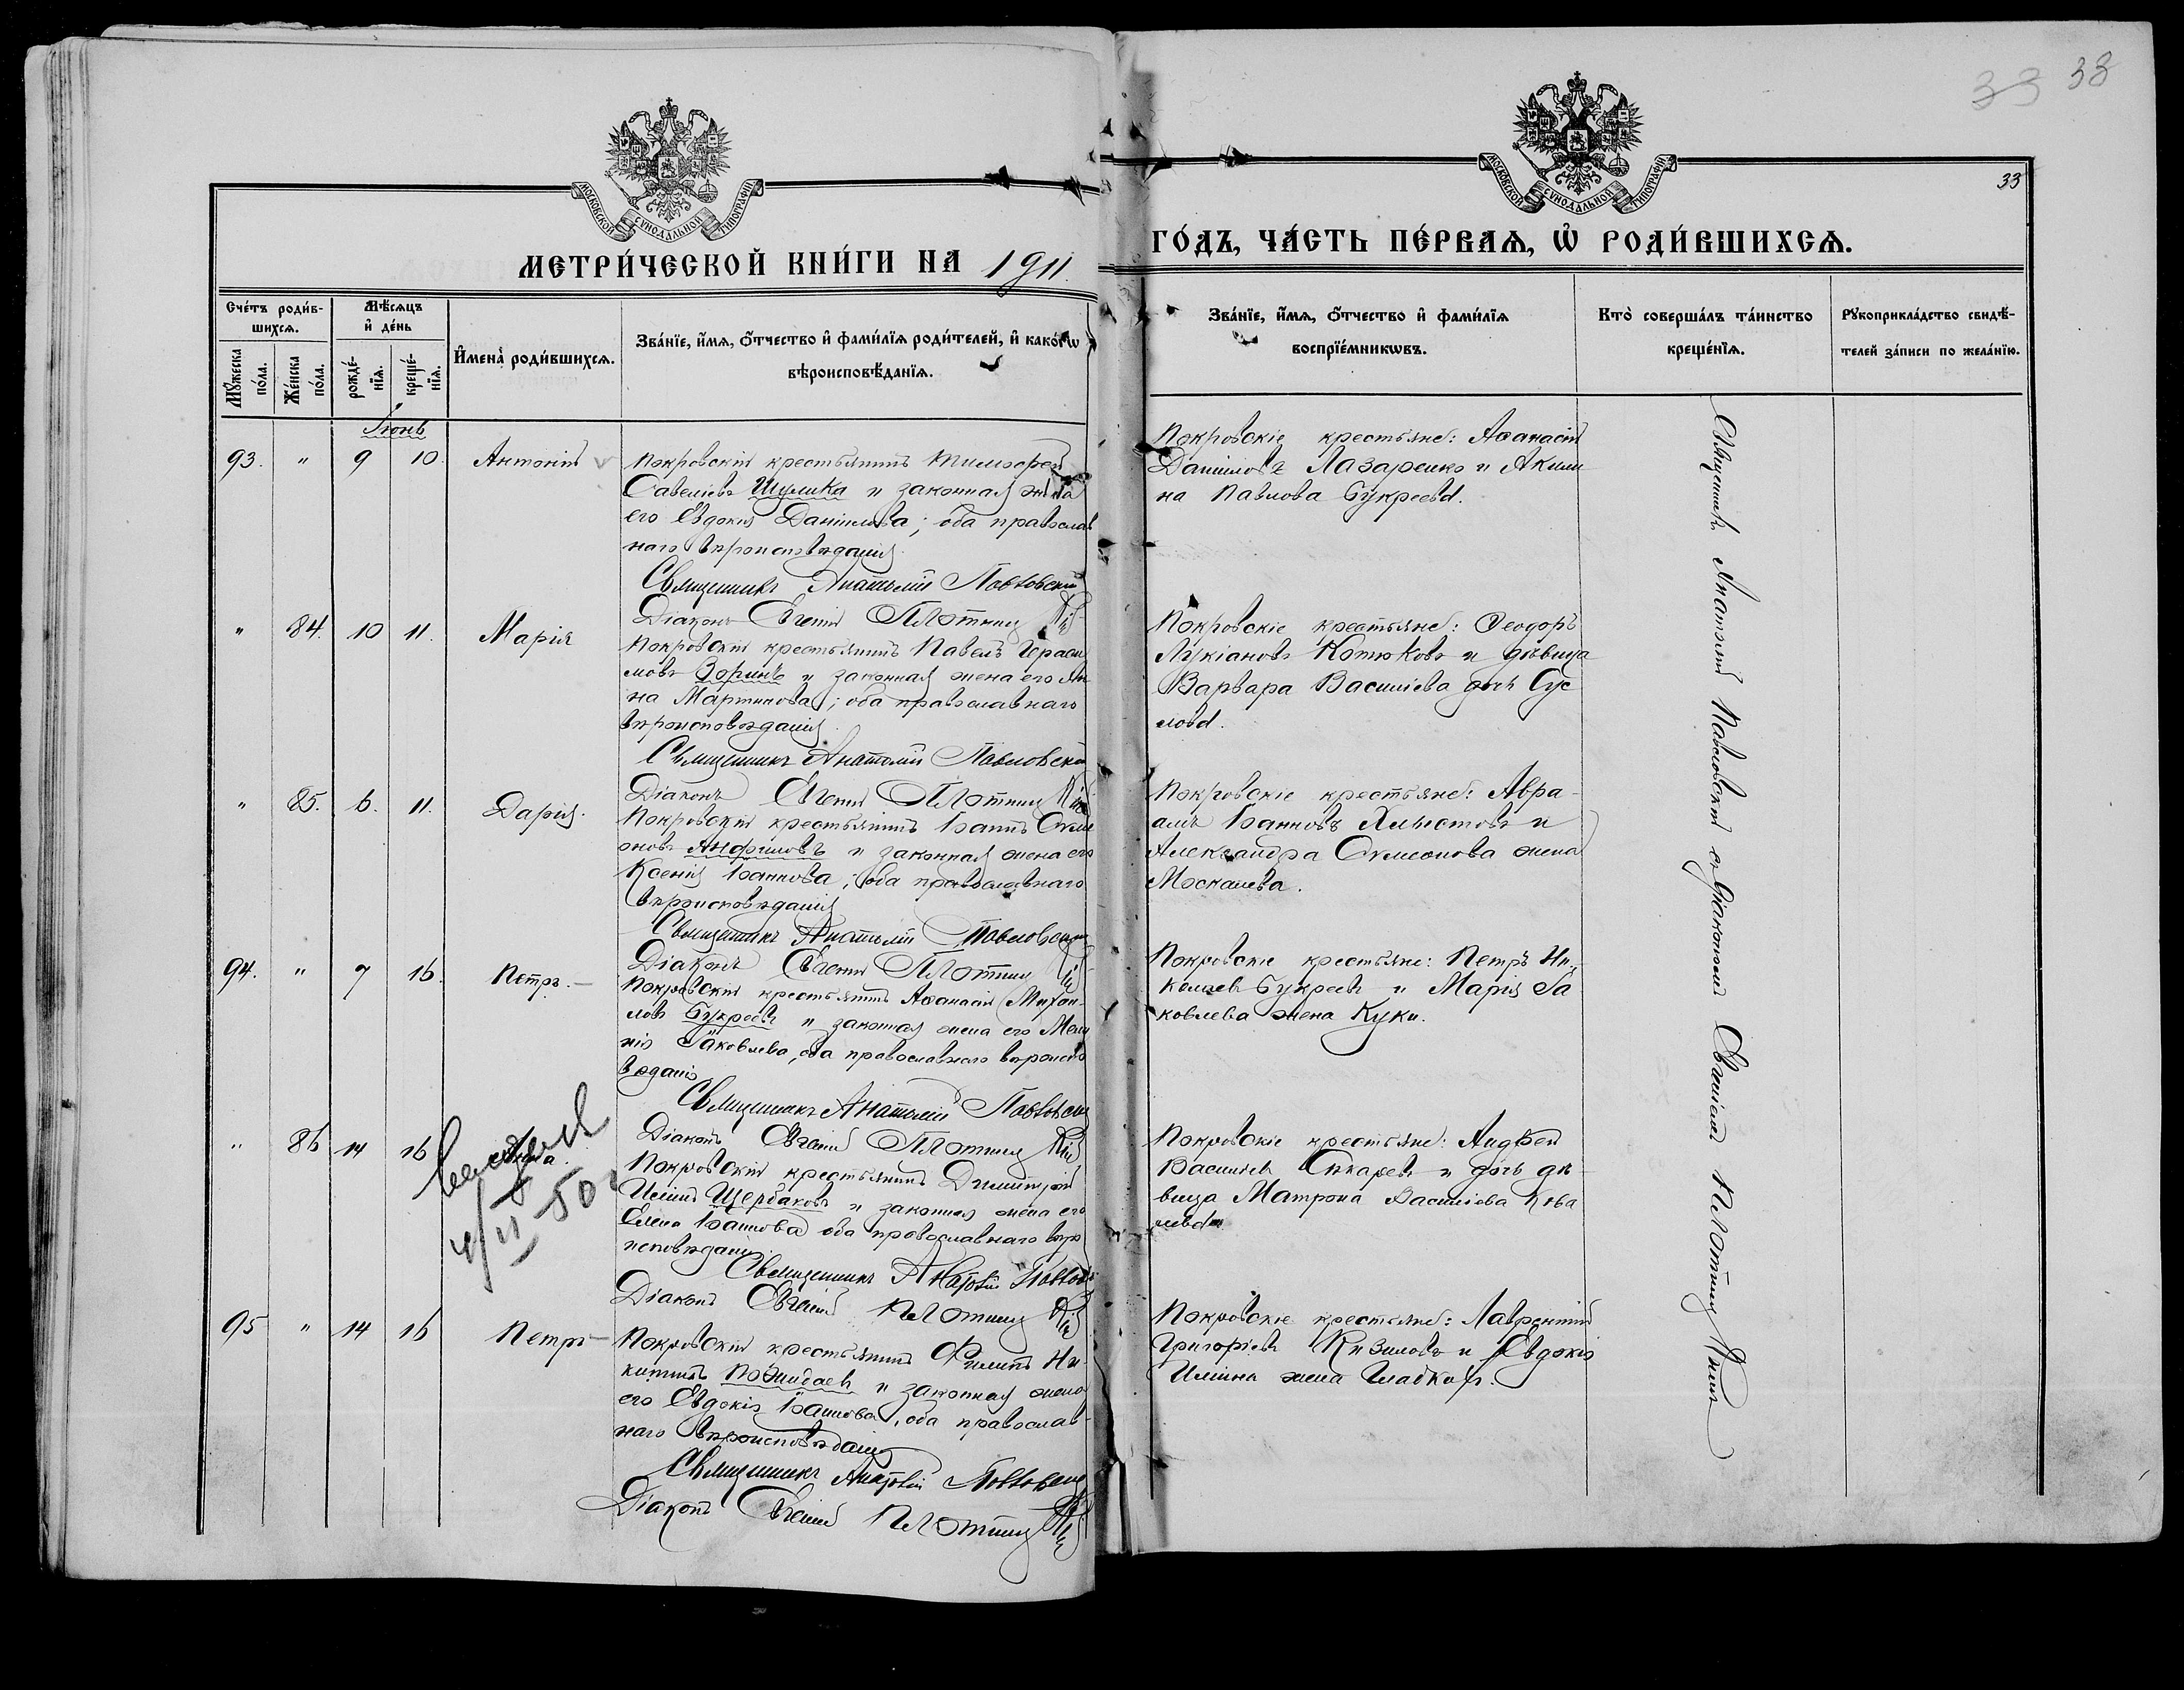 33 38
33
МОСКОВСКОЙ СУНОДАЛЬНОЙ ТИПОГРАФІИ
МОСКОВСКОЙ СУНОДАЛЬНОЙ ТИПОГРАФІИ
МЕТРИ́ЧЕСКОЙ КНИ́ГИ НА 1911
ГО́ДЪ, ЧА́СТЬ ПЕ́РВАѦ, Ѡ҆ РОДИ́ВШИХСѦ.
Сче́тъ роди́в-
шихсѧ.
Мꙋ́жеска по́ла.
Же́нска по́ла.
Мѣ́сѧцъ
и҆ де́нь
рожде́-
нїѧ.
креще́-
нїѧ.
И҆мена̀ роди́вшихсѧ.
Зва́нїе, и҆́мѧ, ѻ҆́тчество и҆ фами́лїѧ роди́телей, и҆ како́гѡ
вѣроисповѣ́данїѧ.
Зва́нїе, и҆́мѧ, ѻ҆́тчество и҆ фами́лїѧ
воспрїе́мникѡвъ.
Кто̀ соверша́лъ та́инство
креще́нїѧ.
Рꙋкоприкла́дство свидѣ́-
телей за́писи по жела́нїю.
Іюнь
93. " 9 10. Антоній
Покровскій крестьянинъ Тимофей
Савеліевъ Шулика и законная жена
его Евдокія Даніилова; оба православ
наго вѣроисповѣданія.
Священникъ Анатолій Павловскій
Діаконъ Евгеній Плотниц
Покровскіе крестьяне: Аѳанасій
Даніиловъ Лазаренко и Акили
на Павлова Букреева.
" 84. 10 11. Марія
Покровскій крестьянинъ Павелъ Гераси
мовъ Зоринъ и законная жена его Ан
на Мартинова; оба православнаго
вѣроисповѣданія.
Священникъ Анатолій Павловскій
Діаконъ Евгеній Плотниц
Покровскіе крестьяне: Ѳеодоръ
Лукіановъ Котюковъ и дѣвица
Варвара Василіева дочь Сус
лова.
" 85. 6. 11. Дарія.
Покровскій крестьянинъ Іоаннъ Симе
оновъ Анфиловъ и законная жена его
Ксенія Іоаннова; оба православнаго
вѣроисповѣданія
Священникъ Анатолій Павловскій
Діаконъ Евгеній Плотниц
Покровскіе крестьяне: Авра
амъ Іоанновъ Хлыстовъ и
Александра Симеонова жена
Москалева.
94. " 7 16. Петръ.
Покровскій крестьянинъ Аѳанасій Михаи
ловъ Букреевъ и законная жена его Мела
нія Іаковлева, оба православнаго вѣроиспо
вѣданія
Священникъ Анатолій Павловскій
Діаконъ Евгеній Плотниц
Покровскіе крестьяне: Петръ Ни
колаевъ Букреевъ и Марія Іа
ковлева жена Куки.
" 86 14 16
4/II 50
Покровскій крестьянинъ Димитрій
Иліинъ Щербаковъ и законная жена его
Елена Іоаннова оба православнаго вѣро
исповѣданія.
Священникъ Анатолій Павлов
Діаконъ Евгеній Плотниц
Покровскіе крестьяне: Андрей
Василіевъ и дочь дѣ
вица Матрона Василіева Кова
лева
95 " 14 16 Петръ
Покровскій крестьянинъ Филиппъ Ни
китинъ Пожидаевъ и законная жена
его Евдокія Іоаннова, оба православ
наго вѣроисповѣданія
Священникъ Анатолій Павловскій
Діаконъ Евгеній Плотниц
Покровскіе крестьяне: Лаврентій
Григоріевъ Кизиловъ и Евдокія
Иліина жена Гладкова.
Священникъ Анатолій Павловскій съ діакономъ Евгеніемъ Плотниц